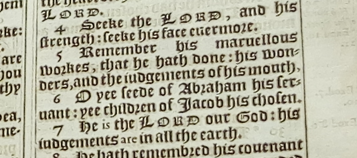 LORD.
4 Seeke the LORD, and his
strength: seeke his face euermore.
5 Remember his maruellous
workes, that he hath done: his won-
ders, and the iudgements of his mouth,
6 O yee seede of Abraham his ser-
uant: yee children of Jacob his chosen.
7 He is the LORD our God: his
iudgements are in all the earth.
8 He hath remembred his couenant
ke:
are
you
thy
ea,
me-